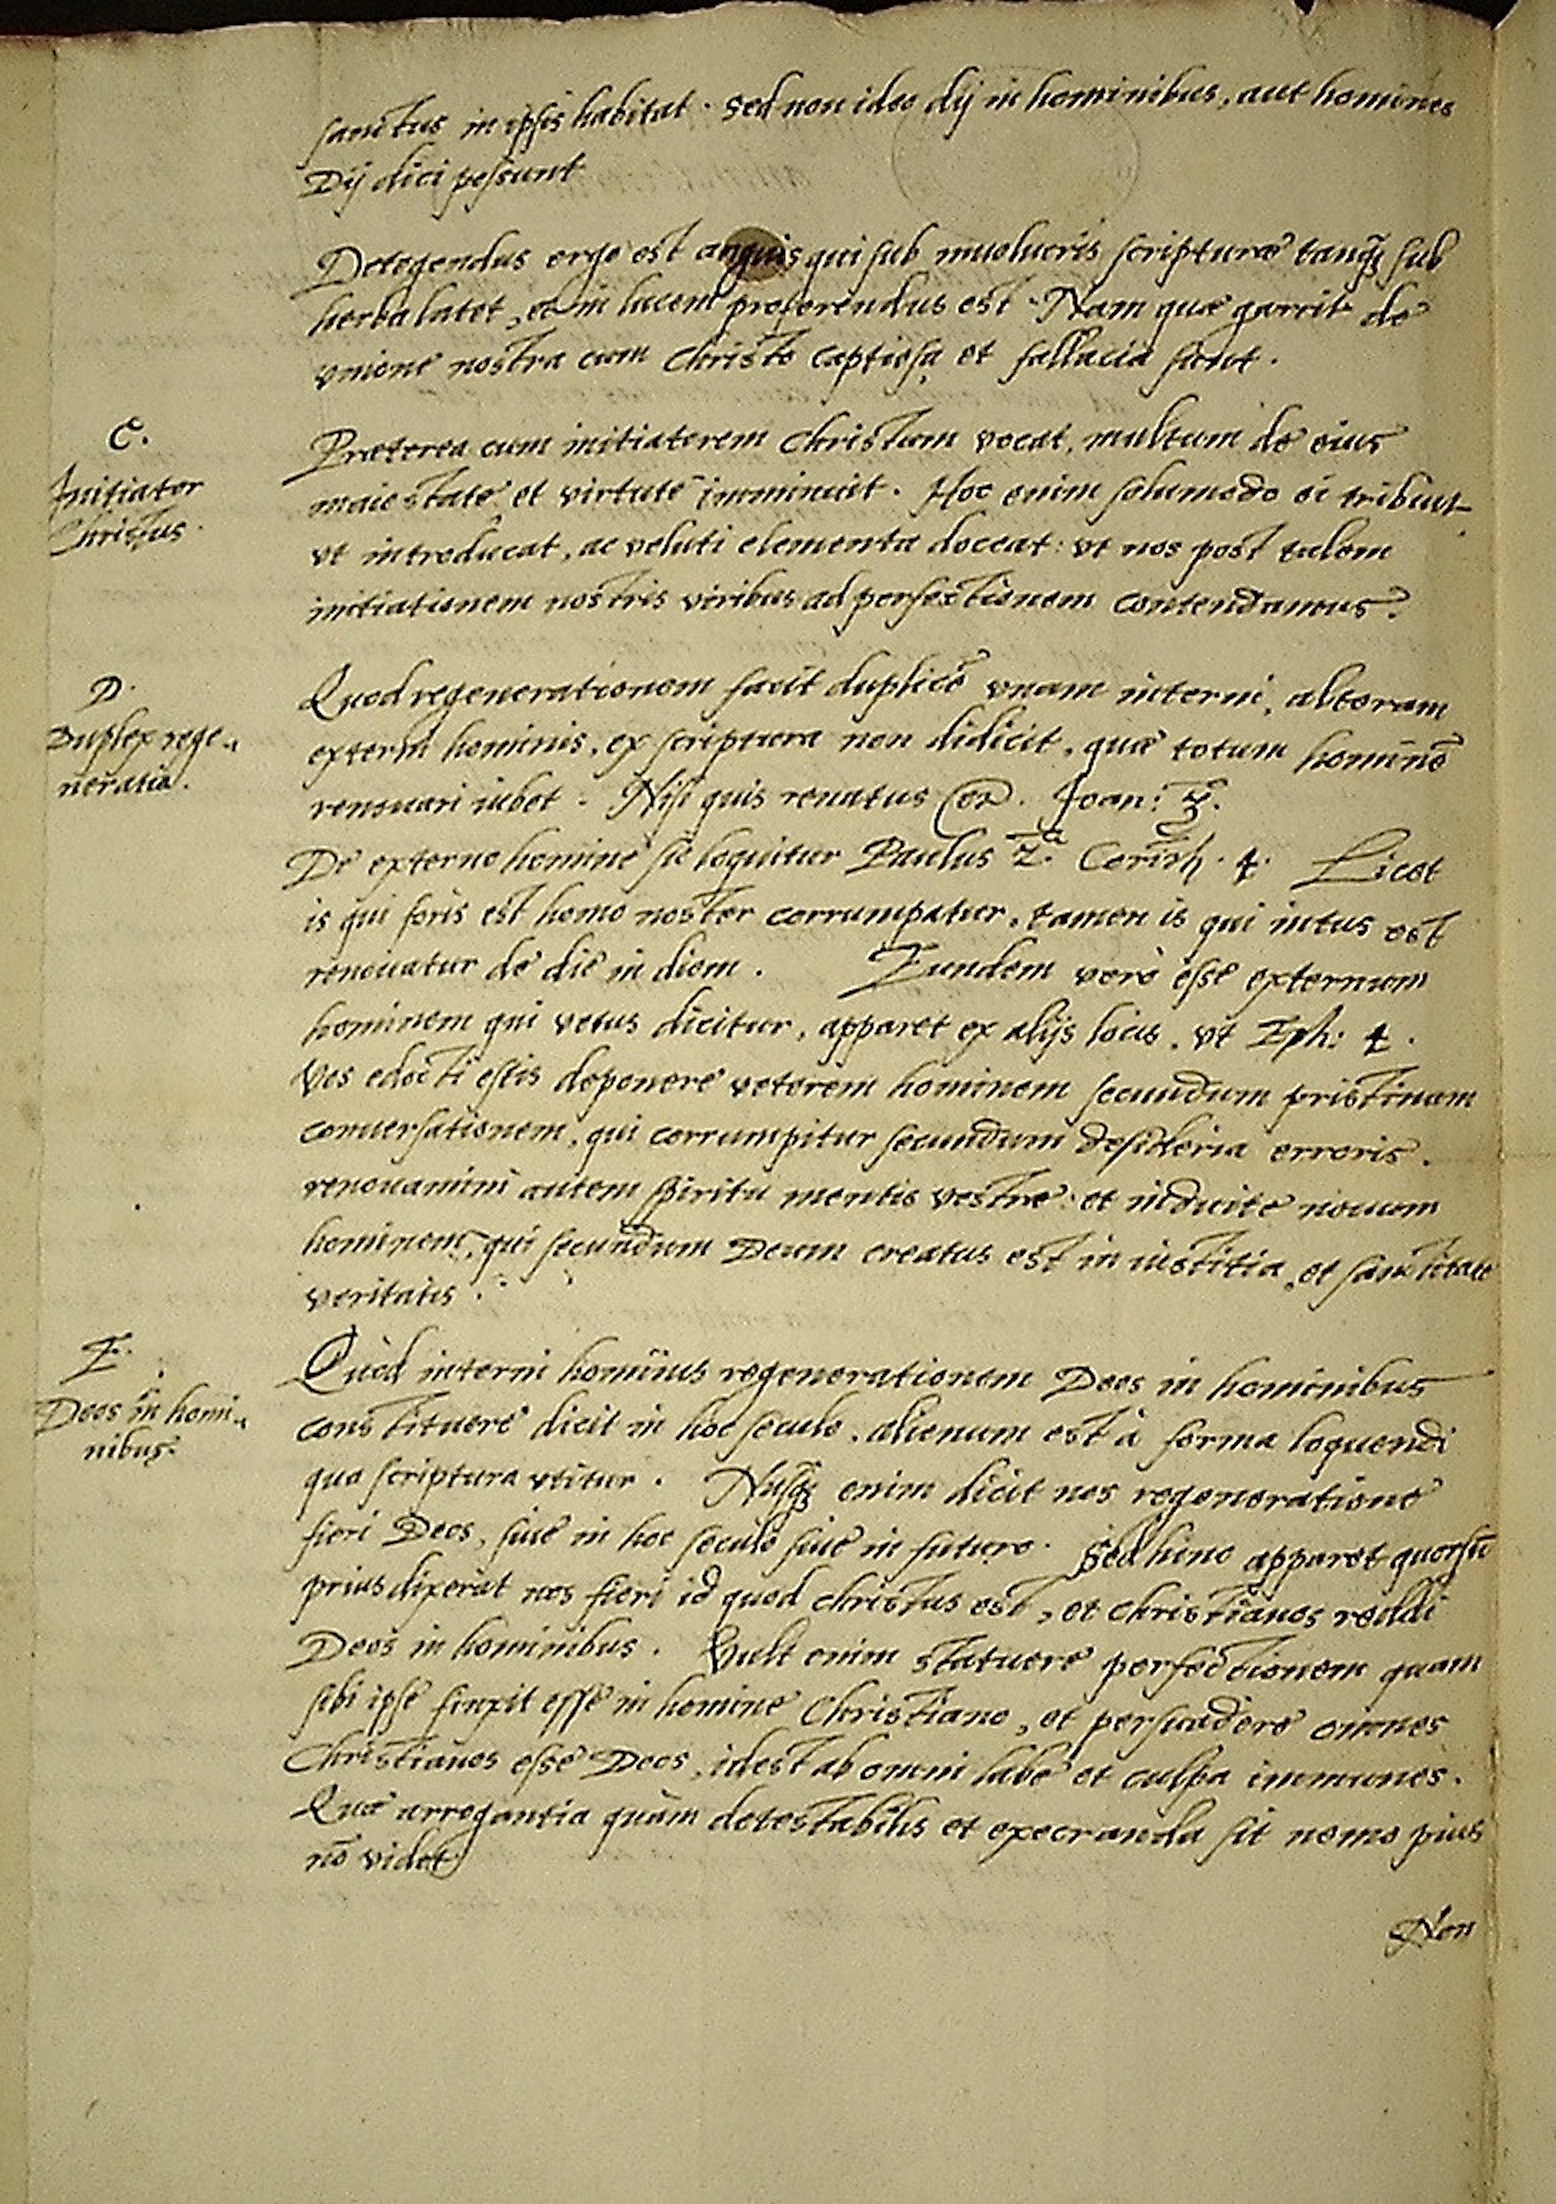 sanctus in ipsis habitat. Sed non ideo dij in hominibus, aut homines
Dij dici possunt
Detegendus ergo est anguis qui sub inuolucris scripturæ tanq̃ sub
herba latet, et in lucem proferendus est. Nam quæ garrit de
vnione nostra cum Christo captiosa et fallacia sunt.
C.
Initiator
Christus.
Præterea cum initiatorem Christum vocat, multum de eius
maiestate et virtute imminuit. Hoc enim solummodo ei tribuit
vt introducat, ac veluti elementa doceat: vt nos post talem
initiationem nostris viribus ad perfectionem contendamus.
D.
Duplex rege-
neratio.
Quod regenerationem facit duplicē vnam interni, alteram
externi hominis, ex scriptura non didicit, quæ totum hominē
renouari iubet. Nisi quis renatus &c. Joan: 3.
De externo homine sic loquitur Paulus 2.a Corinth. 4. Licet
is qui foris est homo noster corrumpatur, tamen is qui intus est
renouatur de die in diem. Eundem verò esse externum
hominem qui vetus dicitur, apparet ex alijs locis, vt Eph: 4.
Vos edocti estis deponere veterem hominem secundum pristinam
conuersationem, qui corrumpitur secundum desideria erroris.
renouamini autem spiritu mentis vestræ: et induite nouum
hominem, qui secundum Deum creatus est in iustitia, et sanctitate
veritatis.
E.
Deos in homi-
nibus.
Quòd interni hominis regenerationem Deos in hominibus
constituere dicit in hoc seculo, alienum est à forma loquendi
qua scriptura vtitur. Nusq̃ enim dicit nos regeneratione
fieri Deos, siue in hoc seculo siue in futuro. Sed hinc apparet quorsū
prius dixerat nos fieri id quod Christus est, et Christianos reddi
Deos in hominibus. Vult enim statuere perfectionem quam
sibi ipse finxit esse in homine Christiano, et persuadere omnes
Christianos esse Deos, id est ab omni labe et culpa immunes.
Quæ arrogantia quàm detestabilis et execranda sit nemo pius
nō videt
Non